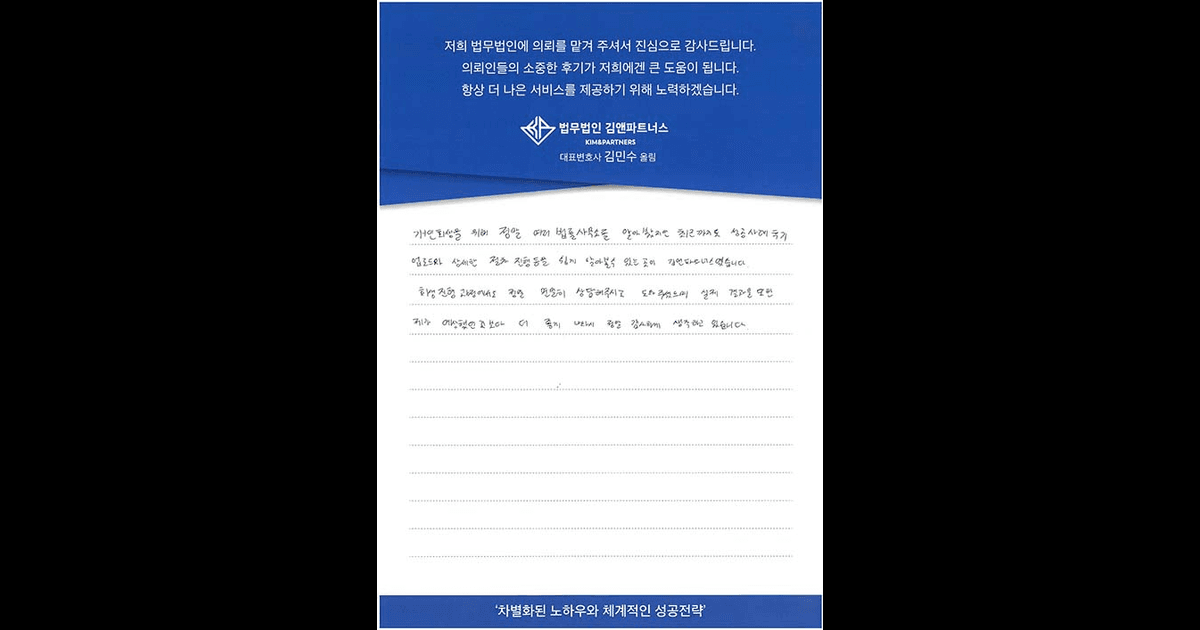 저희 법무법인에 의뢰를 맡겨 주셔서 진심으로 감사드립니다.
의뢰인들의 소중한 후기가 저희에겐 큰 도움이 됩니다.
항상 더 나은 서비스를 제공하기 위해 노력하겠습니다.
법무법인 김앤파트너스
KIM&PARTNERS
대표변호사 김민수 올림
개인회생을 위해 정말 여러 법률사무소를 알아봤지만 최근까지도 성공사례
업로드와 상세한 절차 진행등을 쉽게 알아볼수 있는 곳이 김앤파트너스였습니다.
회생 진행 과정에서도 정말 친절히 상담해주시고 도와주셨으며 실제 결과물 또한
제가 예상했던 더 좋게 나와서 정말 감사하게 생각하고 있습니다
'차별화된 노하우와 체계적인 성공전략'